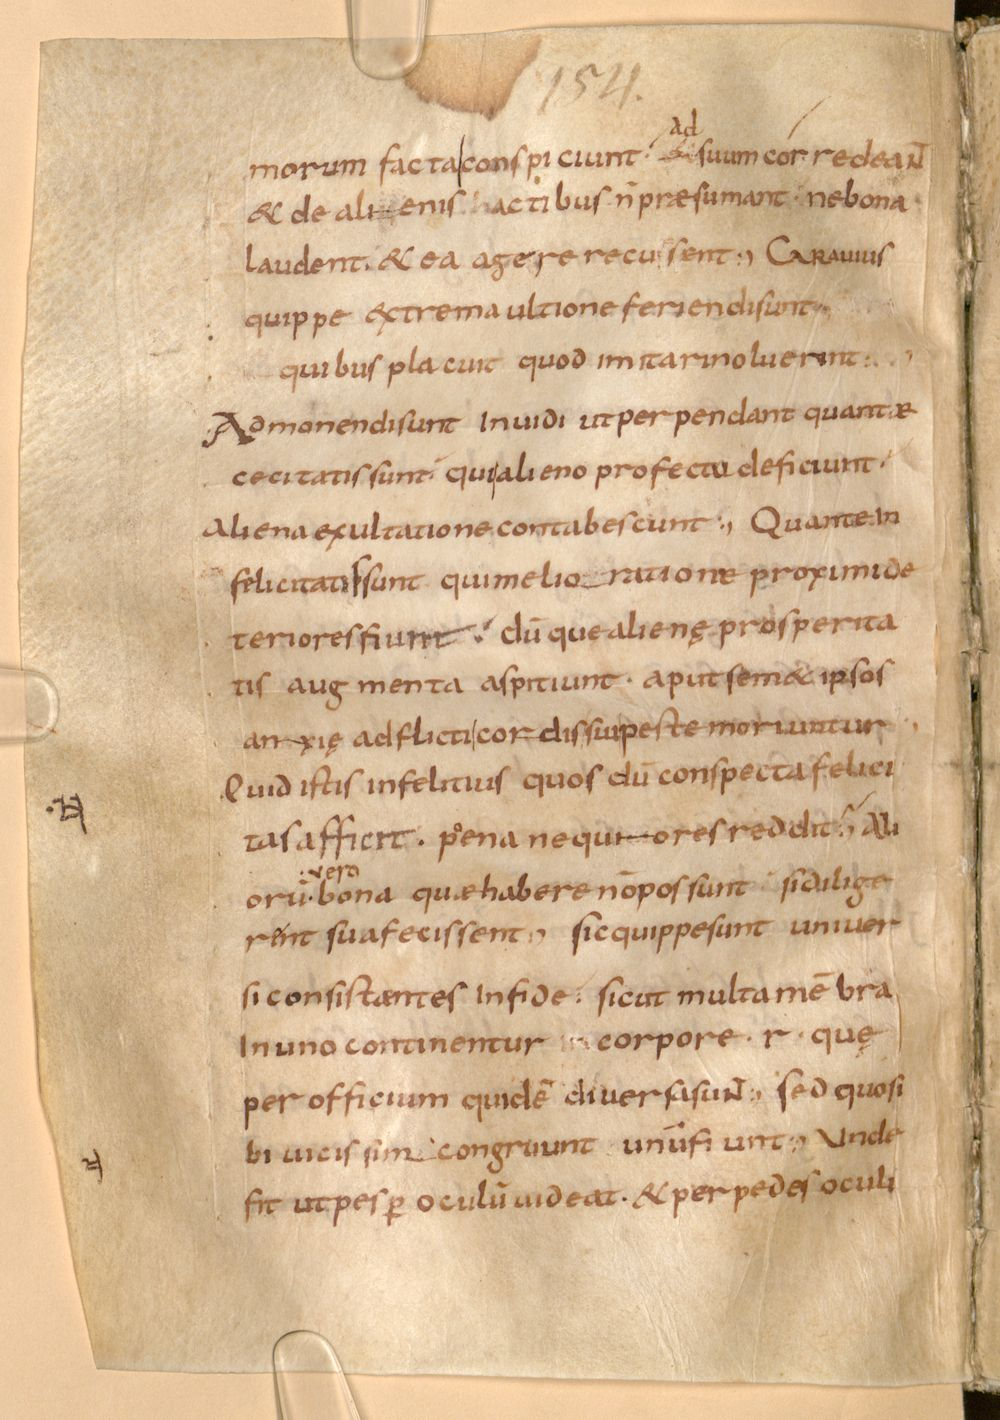 154.
morum facta conspiciunt· Ad suum cor redeant
& de alienis actibus n̄ præsumant· ne bona
laudent. & ea agere recussent·, Grauius
quippe extrema ultione feriendi sunt·,
quibus placuit quod imitari noluerint:·
Admonendi sunt inuidi ut perpendant quantæ
cecitatis sunt· qui alieno profectu deficiunt·
Aliena exultatione contabescunt·, Quante in
felicitatis sunt qui melioratione proximi de
teriores fiunt· dū que alienę prosperita
tis augmenta aspitiunt· aput sem&ipsos
anxię adflicti cordis sui peste moriuntur
Quid istis infelitius quos dū conspecta felici
tas afficit· pena nequiores reddit·, Ali
orū· vero bona quæ habere nō possunt si dilige
rent sua fecissent·, sic quippe sunt uniuer
si consistentes in fide· sicut multa mēbra
In uno continentur corpore· r· quę
per officium quidē diuersa sunt·, sed quo si
bi uicissim congruunt unū fiunt·, Unde
fit ut pes ꝑ oculū uideat· & per pedes oculi